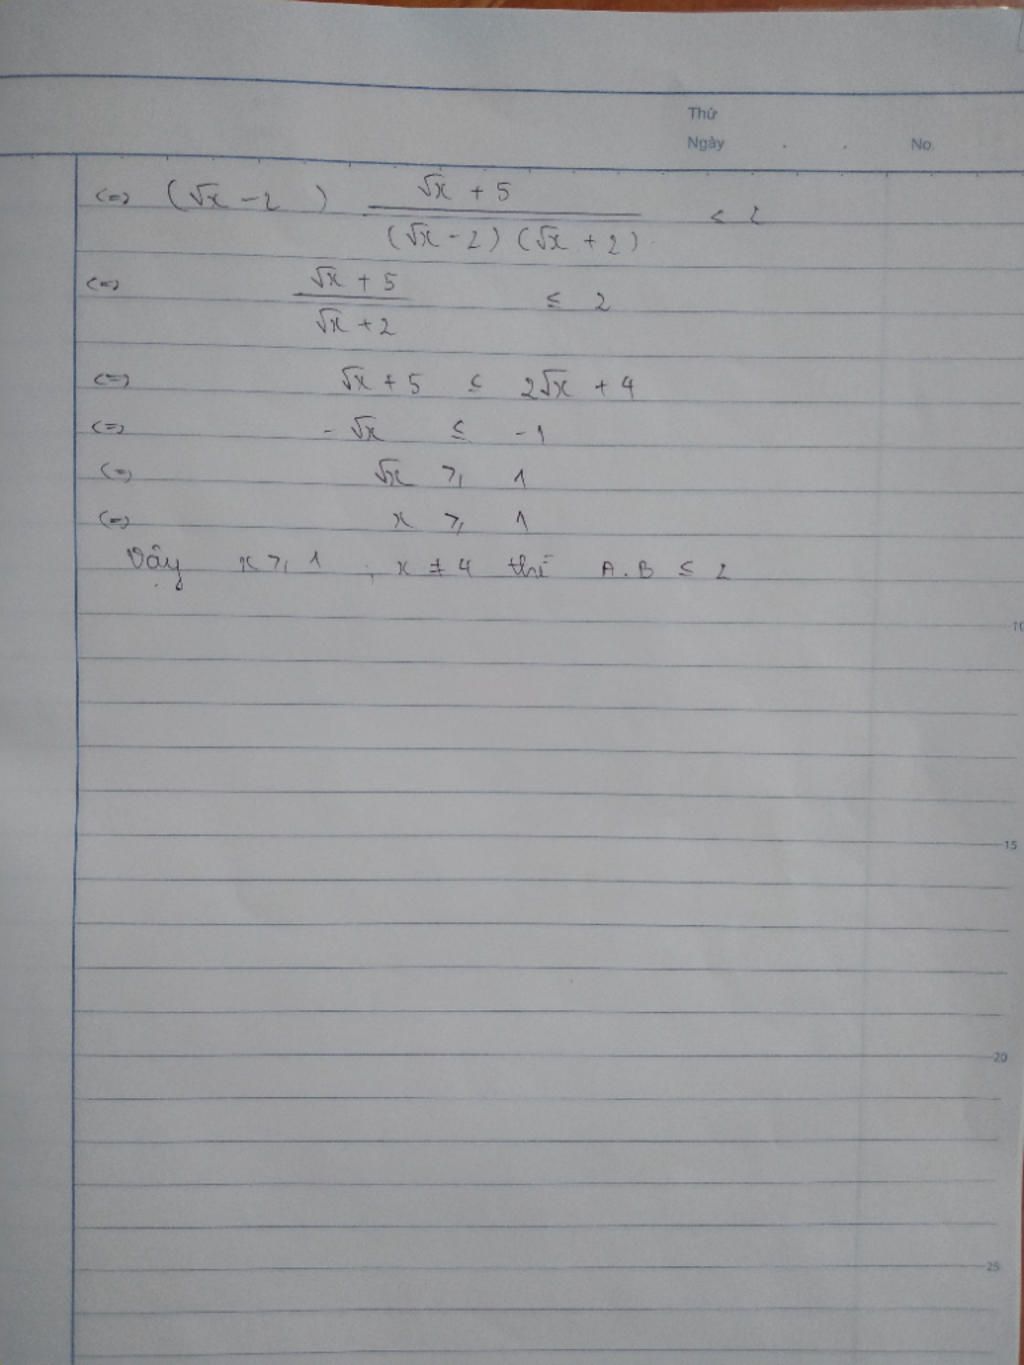 Thứ
Ngày . . No.
(=) (√x - 2) (√x + 5)/((√x - 2)(√x + 2)) ≤ 2
(=) (√x + 5)/(√x + 2) ≤ 2
(=) √x + 5 ≤ 2√x + 4
(=) - √x ≤ - 1
(=) √x ⩾ 1
(=) x ⩾ 1
Vậy x ⩾ 1 ; x ≠ 4 thì A.B ≤ 2
10
15
20
25